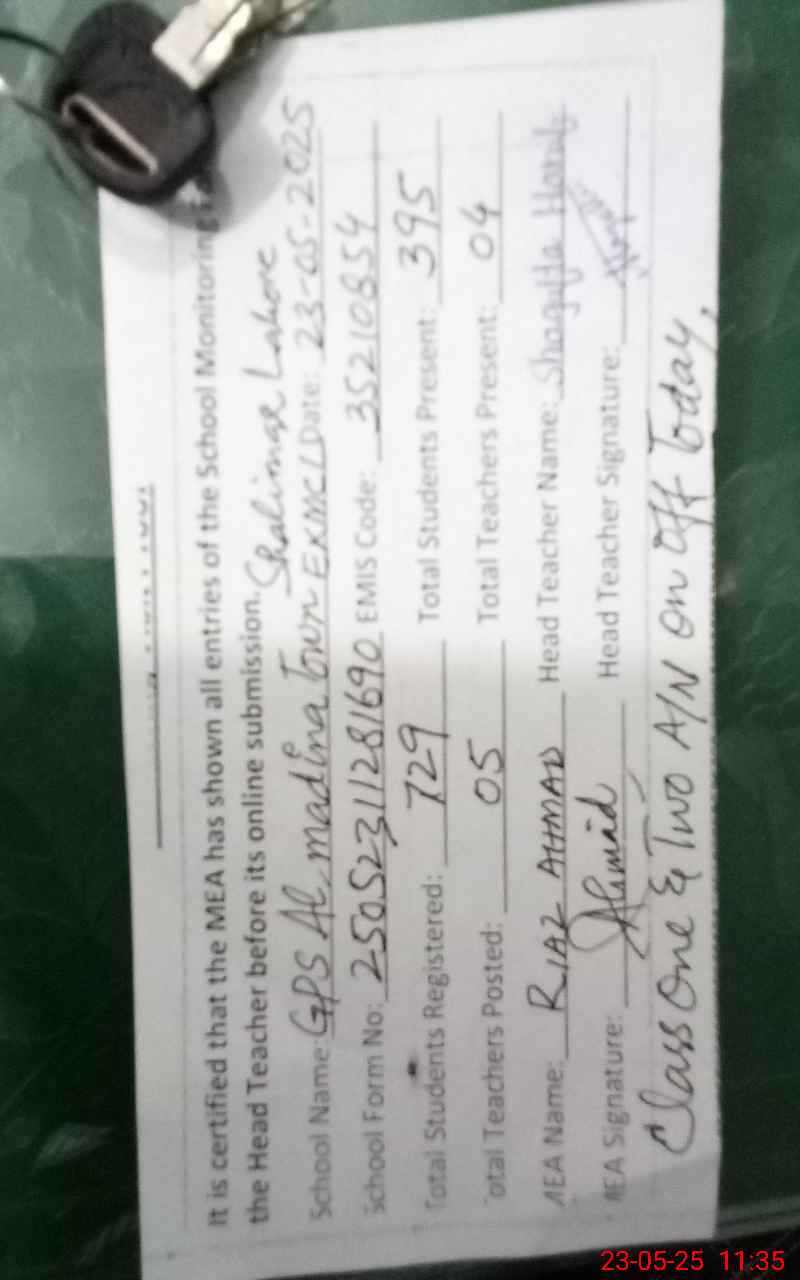 It is certified that the MEA has shown all entries of the School Monitoring
the Head Teacher before its online submission. Shalimar Lahore
School Name: GPS Al, madina Town EXMCL Date: 23-05-2025
School Form No: 25052311281690 EMIS Code: 35210854
Total Students Registered: 729 Total Students Present: 395
Total Teachers Posted: 05 Total Teachers Present: 04
MEA Name: RIAZ AHMAD Head Teacher Name: Shagufta Hanif
MEA Signature: Ahmad Head Teacher Signature:
Class One & Two A/N on off Today.
23-05-25 11:35